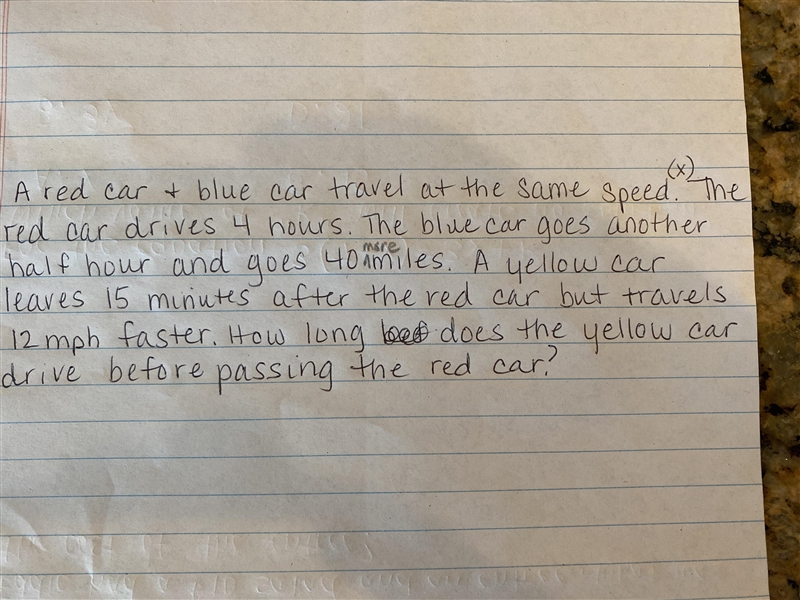 (x)
A red car + blue car travel at the same speed. The
red car drives 4 hours. The blue car goes another
more
half hour and goes 40 ^ miles. A yellow car
leaves 15 minutes after the red car but travels
12 mph faster. How long does the yellow car
drive before passing the red car?